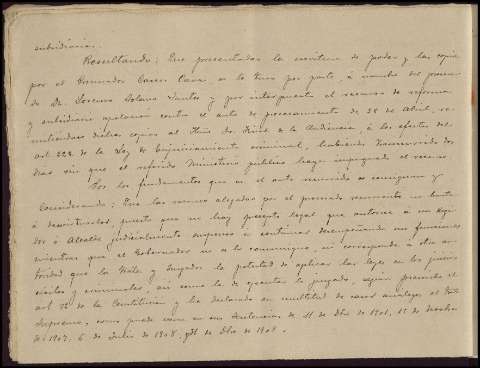 subsidiaria.
Resultando: Que presentadas la escritura de poder y las copias
por el Procurador se le tuvo por parte, á nombre del procesado
Dn. Lorenzo Solano y por interpuesto el recurso de reforma
y subsidiario apelacion contra el auto de procesamiento de 28 de Abril, re-
mitiendose dichas copias al Iltmo Sr. Fiscal de la Audiencia, á los efectos del
art. 222 de la Ley de Enjuiciamiento criminal, habiendo transcurrido dos
dias sin que el referido Ministerio público haya impugnado el recurso
Por los fundamentos que en el auto recurrido se consignan y
Considerando: Que las razones alegadas por el procesado recurrente no
á desvirtuarlos, puesto que no hay precepto legal que autorice á un Regi-
dor ó Alcalde judicialmente suspenso á continuar desempeñando sus funciones
mientras que el Gobernador no se lo comunique, ni corresponde á otra au-
toridad que la Jueces y Juzgados la potestad de aplicar las leyes en los juicios
civiles y criminales, asi como la de ejecutar lo juzgado, segun previene el
art. 76 de la Constitucion y ha declarado en multitud de casos analogos el Trib.
Supremo, como puede verse en sus sentencias de 11 de Dbre de 1901, 12 de
de 1907, 6 de Julio de 1908, de Dbre de 1908.